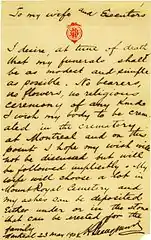 To my wife and Executors
I desire, at time of death
that my funerals shall
be as modest and simple
as possible. No bearers,
no flowers, no religious
ceremony of any kind.
I wish my body to be cre-
mated in the crematory
at Montreal and on this
point I hope my wish will
not be discussed but will
be followed implicitly. My
wife will choose a lot in
Mount Royal Cemetery and
my ashes can be deposited
either under or in the stone
that can be erected for the
family.
Montreal 23 May 1902